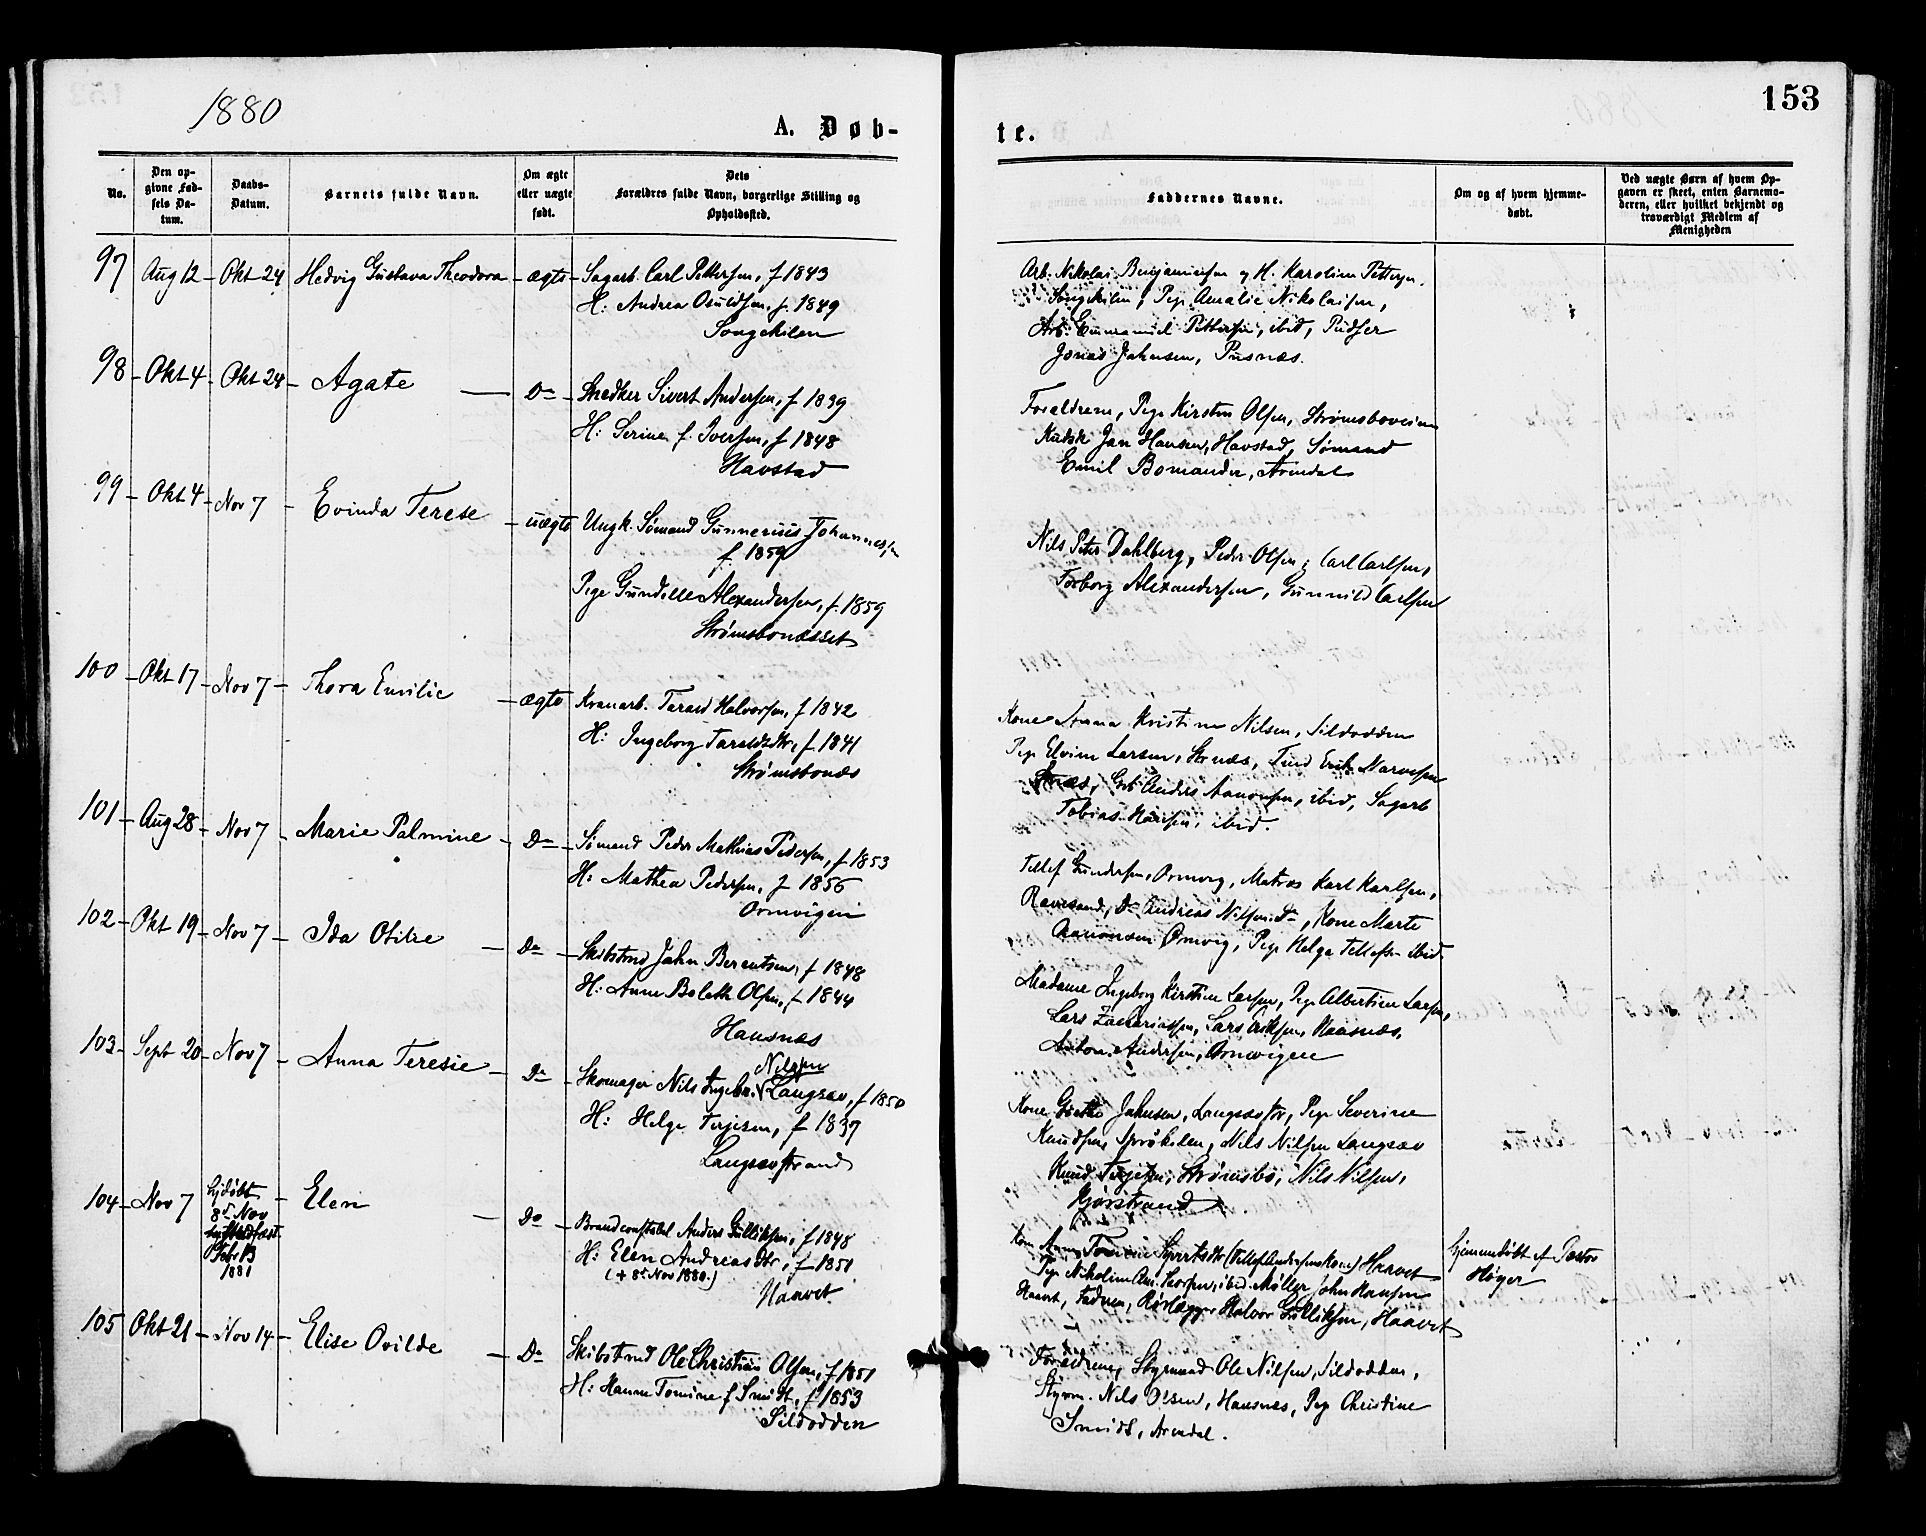 1880
153
A. Døb-
te.
No.
Den op-
givne Fød-
sels Da-
tum.
Daabs-
Datum.
Barnets fulde Navn.
Om ægte
eller uægte
født.
Dets
Forældres fulde Navn, borgerlige Stilling og
Opholdssted.
Faddernes Navne.
Om og af hvem hjemme-
døbt.
Ved uægte Børn af hvem Op-
gaven er skeet, enten Barnemo-
deren, eller hvilket bekjendt og
troværdigt Medlem af
Menigheden
97 Aug 12 - Okt 24 Hedvig Gustava Theodora - ægte - Sagarb. Carl Pettersen, f 1843
H: Andrea Osuldsen, f 1849
Songekilen
Arb. Nikolai Benjaminsen og H. Karoline Pettersen.
Songekilen, Pige Amalie Nikolaisen,
Arb. Emmanuel Pettersen, ibid, Pudser
Jonas Johnsen, Pusnæs.
98 - Okt 4 - Okt 24 - Agate - Do - Snedker Sivert Andersen, f 1839
H: Serine f. Iversen, f 1848
Havstad
Forældrene, Pige Kirsten Olsen, Strømsboveien
Kudsk Jan Hansen, Havstad, Sømand
Emil Bomander, Arendal
99 - Okt 4 - Nov 7 - Evinda Terese - uægte Ungk. Sømand Gunnerius Johannesen
f. 1859
Pige Gundelle Alexandersen, f. 1859
Strømsbonæsset
Nils Peter Dahlberg, Peder Olsen, Carl Carlsen,
Torborg Alexandersen, Gunnild Carlsen
100 - Okt 17 - Nov 7 - Thora Emilie - ægte Kranarb. Tarald Halvorsen, f 1842
H: Ingeborg Taraldsdtr, f 1841
Strømsbonæs
Kone Anna Kristine Nilsen, Sildodden
Pige Elvine Larsen, Strnæs, Tømd Erik Narvesen
Strnæs, Anders Aanonsen, ibid, Sagarb
Tobias Hansen, ibid.
101 - Aug 28 - Nov 7 - Marie Palmine - Do - Sømand Peder Mathias Pedersen, f 1853
H: Mathea Pedersen, f 1856
Ormvigen
Tellef Gundersen, Ormvig, Matros Karl Karlsen,
Ravnesund, Do Andreas Nilsen Do, Kone Marte
Aanonsen Ormvig, Pige Helga Tellefsen ibid
102 - Okt 19 - Nov 7 - Ida Otilie - Do - Skibstmd John Berentsen, f 1848
H: Anne Bolette Olsen, f 1844
Hansnæs
Madame Ingeborg Kirstine Larsen, Pige Albertine Larsen,
Lars Zachariassen, Lars Eriksen, Hansnæs,
Anton Andersen, Ormvigen
103 - Sept 20 - Nov 7 - Anna Teresie - Do - Skomager Nils Ingebr. Nilsen Langsæv, f 1850
H: Helge Terjesen, f 1837
Langsævstrand
Kone Grethe Johnsen, Langsævstr, Pige Severine
Knudsen, Sprøkilen, Nils Nilsen Langsæv
Knud Terjesen, Strømsbo, Nils Nilsen,
Kjørstrand
104 - Nov 7 hjdøbt
8de Nov
stadfæst
Febr 13
1881
- Elen - Do - Brandconstabel Anders Gulliksen, f 1848
H: Elen Andreasdtr, f 1851
(+ 8de Nov 1880.)
Haavet
Kone Anne Tomine Syvertsdtr (Tellef Andersens Kone) Haavet
Pige Nikoline Larsen, ibid. Møller John Hansen
Haavet, Faderen, Rørlægger Halvor Gulliksen, Haavet
hjemmedøbt af Pastor
Høyer
105 Okt 21 - Nov 14 - Elise Ovilde - Do - Skibstmd Ole Christian Olsen, f 1851
H: Hanne Tomine f Smidt, f 1853
Sildodden
Forældrene, Styrmand Ole Nilsen, Sildodden,
Styrm. Nils Olsen, Hansnæs, Pige Christine
Smidt, Arendal.